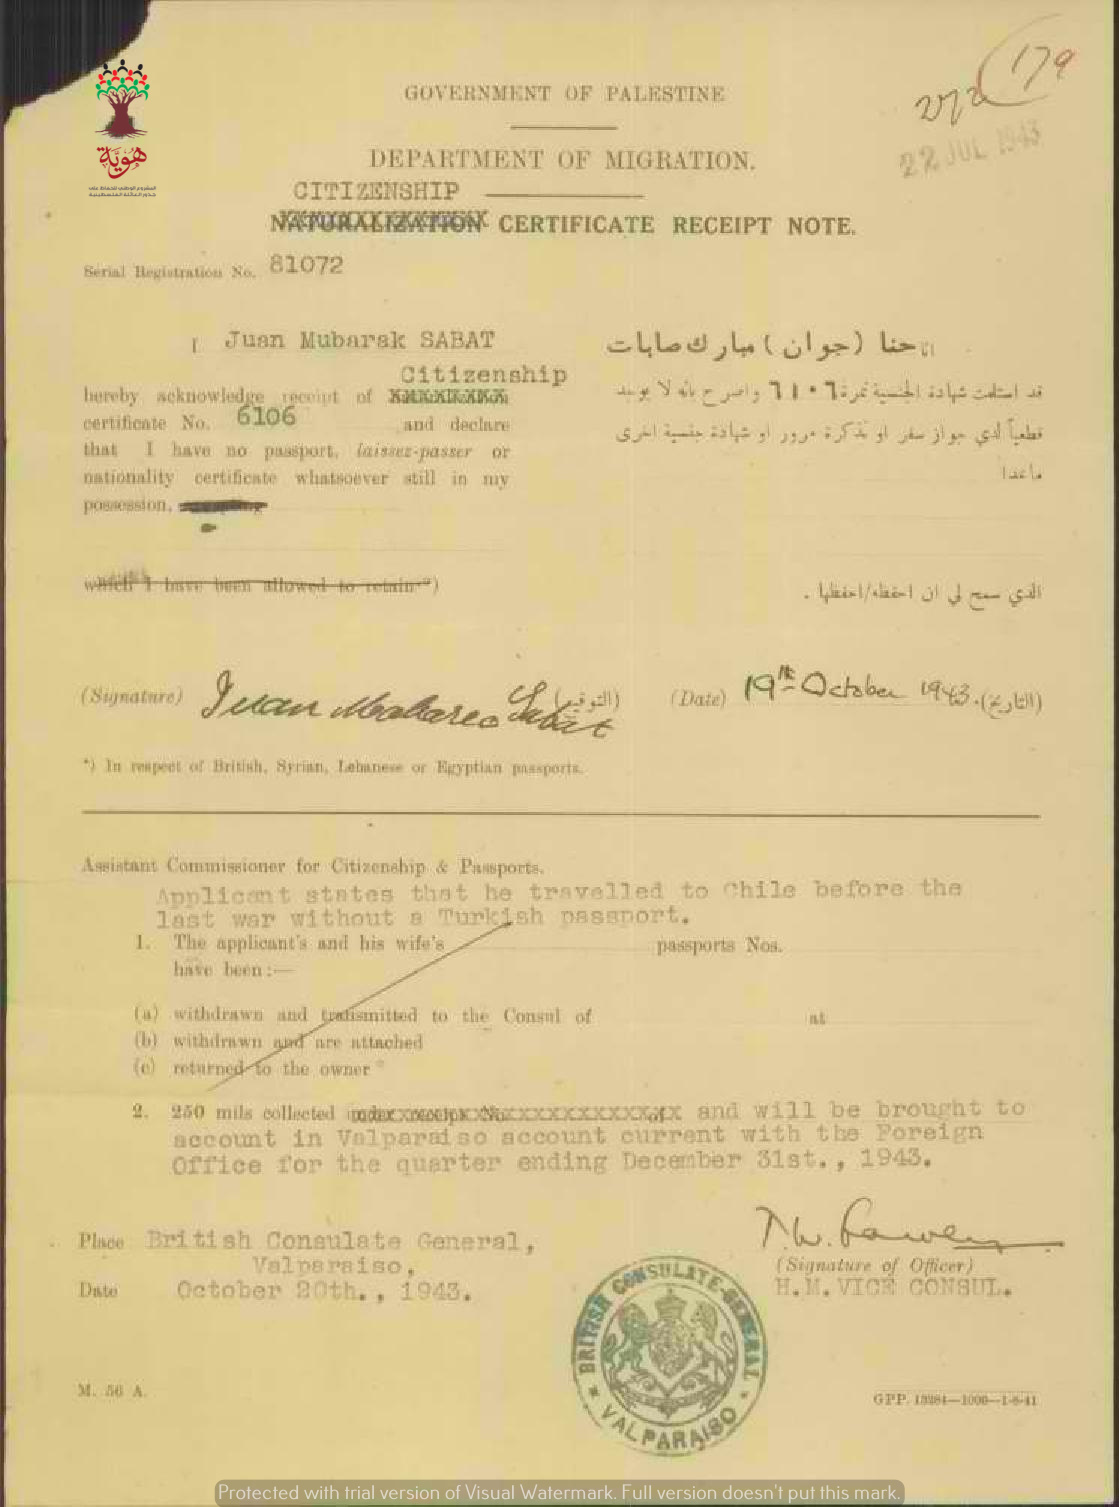 179
272
22 JUL 1943
هوية
GOVERNMENT OF PALESTINE
DEPARTMENT OF MIGRATION.
CITIZENSHIP
NATURALIZATION CERTIFICATE RECEIPT NOTE.
Serial Registration No. 81072
I Juan Mubarak SABAT
Citizenship
hereby acknowledge receipt of
certificate No. 6106 and declare
that I have no passport, laissez-passer or
nationality certificate whatsoever still in my
possession,
which I have been allowed to retain.*)
انا حنا (جوان) مبارك صابات
قد استلمت شهادة الجنسية نمرة ٦١٠٦ واصرح بانه لا يوجد
قطعياً لدي جواز سفر او تذكرة مرور او شهادة جنسية اخرى
ماعدا
الذي سمح لي ان احفظه/احفظها .
(Signature) Juan Sabat (التوقيع)
(Date) 19th October 1943. (التاريخ)
*) In respect of British, Syrian, Lebanese or Egyptian passports.
Assistant Commissioner for Citizenship & Passports.
Applicant states that he travelled to Chile before the
last war without a Turkish passport.
1. The applicant's and his wife's passports Nos.
have been:—
(a) withdrawn and transmitted to the Consul of at
(b) withdrawn and are attached
(c) returned to the owner *
2. 250 mils collected under receipt No. of and will be brought to
account in Valparaiso account current with the Foreign
Office for the quarter ending December 31st., 1943.
Place British Consulate General,
Valparaiso,
Date October 20th., 1943.
(Signature of Officer)
H.M. VICE CONSUL.
BRITISH CONSULATE-GENERAL
* VALPARAISO *
M. 56 A.
GPP. 13284—1000—1-8-41
Protected with trial version of Visual Watermark. Full version doesn't put this mark.